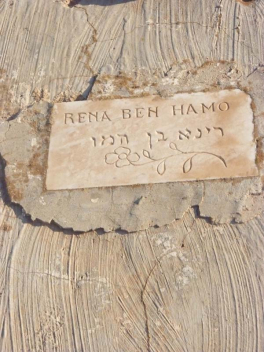 RENA BEN HAMO
רינא בן המו